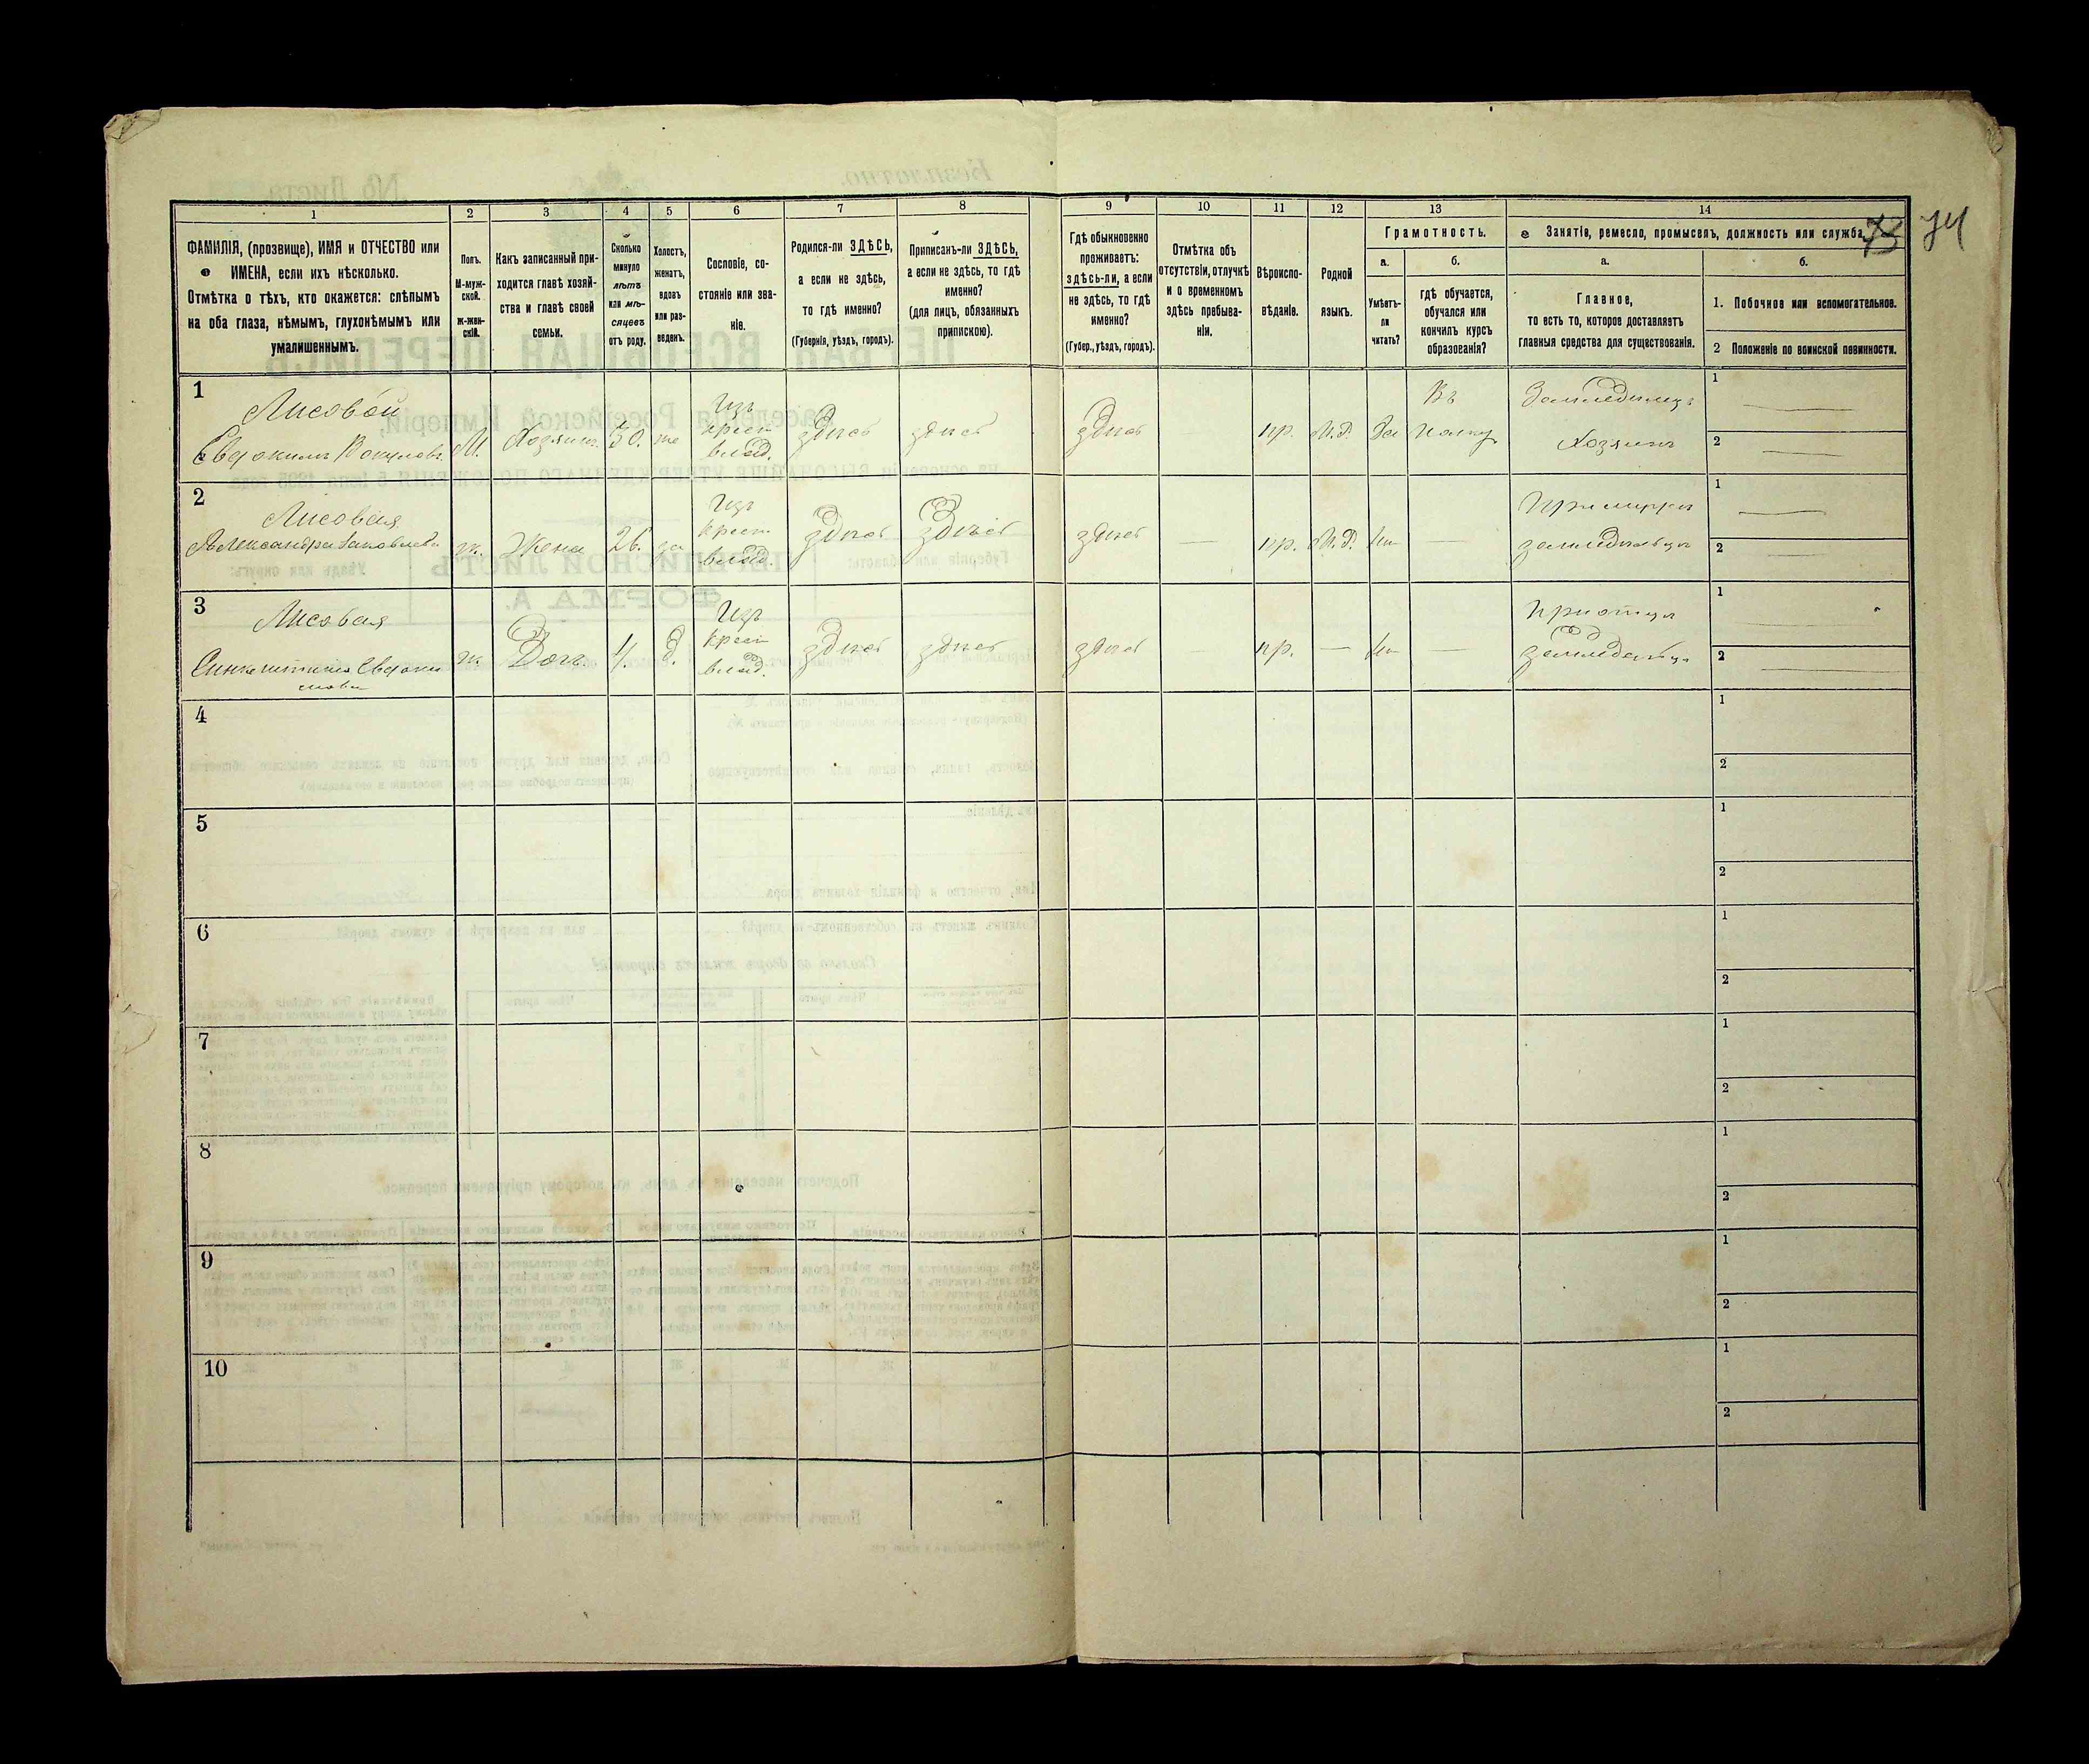 1 2 3 4 5 6 7 8 9 10 11 12 13 14
74
ФАМИЛІЯ, (прозвище), ИМЯ и ОТЧЕСТВО или
ИМЕНА, если ихъ нѣсколько.
Отмѣтка о тѣхъ, кто окажется: слѣпымъ
на оба глаза, нѣмымъ, глухонѣмымъ или
умалишеннымъ.
Полъ.
М-муж-
ской.
Ж-жен-
скій.
Какъ записанный при-
ходится главѣ хозяй-
ства и главѣ своей
семьи.
Сколько
минуло
лѣтъ
или мѣ-
сяцевъ
отъ роду.
Холостъ,
женатъ,
вдовъ
или раз-
веденъ.
Сословіе, со-
стояніе или зва-
ніе.
Родился-ли ЗДѢСЬ,
а если не здѣсь,
то гдѣ именно?
(Губернія, уѣздъ, городъ).
Приписанъ-ли ЗДѢСЬ,
а если не здѣсь, то гдѣ
именно?
(для лицъ, обязанныхъ
припискою).
Гдѣ обыкновенно
проживаетъ:
здѣсь-ли, а если
не здѣсь, то гдѣ
именно?
(Губер., уѣздъ, городъ).
Отмѣтка объ
отсутствіи, отлучкѣ
и о временномъ
здѣсь пребыва-
ніи.
Вѣроиспо-
вѣданіе.
Родной
языкъ.
Грамотность.
а.
Умѣетъ-
ли
читать?
б.
гдѣ обучается,
обучался или
кончилъ курсъ
образованія?
Занятіе, ремесло, промыселъ, должность или служба.
а.
Главное,
то есть то, которое доставляетъ
главныя средства для существованія.
б.
1. Побочное или вспомогательное.
2 Положеніе по воинской повинности.
1
Лисовой
Евдокимъ
М. Хозяинъ. 30. же
Изъ
крест
влад.
здѣсь здѣсь здѣсь пр. М.Р. Да
Въ
полку
Земледѣлецъ
Хозяинъ
1
2
2
Лисовая
Александра Яковлева
ж. Жена 26. за
Изъ
крест
влад.
здѣсь здѣсь здѣсь — пр. М.Р. Не —
При мужѣ
земледѣльцѣ
1
2
3
Лисовая
ж. Дочь. 4. д.
Изъ
крест
влад.
здѣсь здѣсь здѣсь — пр. — Не —
При отцѣ
земледѣльцѣ
1
2
4
1
2
5
1
2
6
1
2
7
1
2
8
1
2
9
1
2
10
1
2